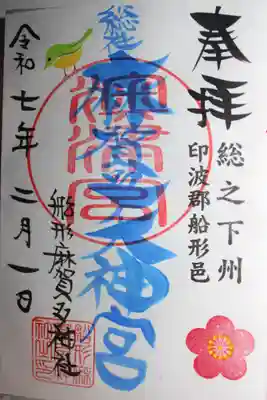 奉拝
総之下州
印波郡船形邑
総社
麻賀多神宮
船形麻賀多神社
令和七年二月一日